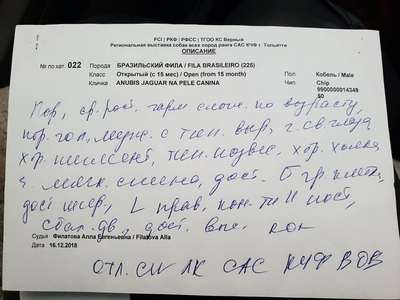 FCI | РКФ | РФСС | ТГОО КС Верный
Региональная выставка собак всех пород ранга САС КЧФ г. Тольятти
ОПИСАНИЕ
№ по кат. 022 Порода БРАЗИЛЬСКИЙ ФИЛА / FILA BRASILEIRO (225)
Класс Открытый (с 15 мес) / Open (from 15 month) Пол Кобель / Male
Кличка ANUBIS JAGUAR NA PELE CANINA Тип Chip
9900000014349
50
Пор, ср. рост, гарм слож. по возрасту,
пор. гол, с тип. выр, г. св глаза
хор. пигмент, тип. подвес, хор. холка
мягк. спина, дост. гр. клетка
дост шер, L прав, кон-ти и пост,
сбал. дв, дост.
Судья Филатова Алла Евгеньевна / Filatova Alla
Дата 16.12.2018
ОТЛ. CW ЛК САС КЧФ ВОВ